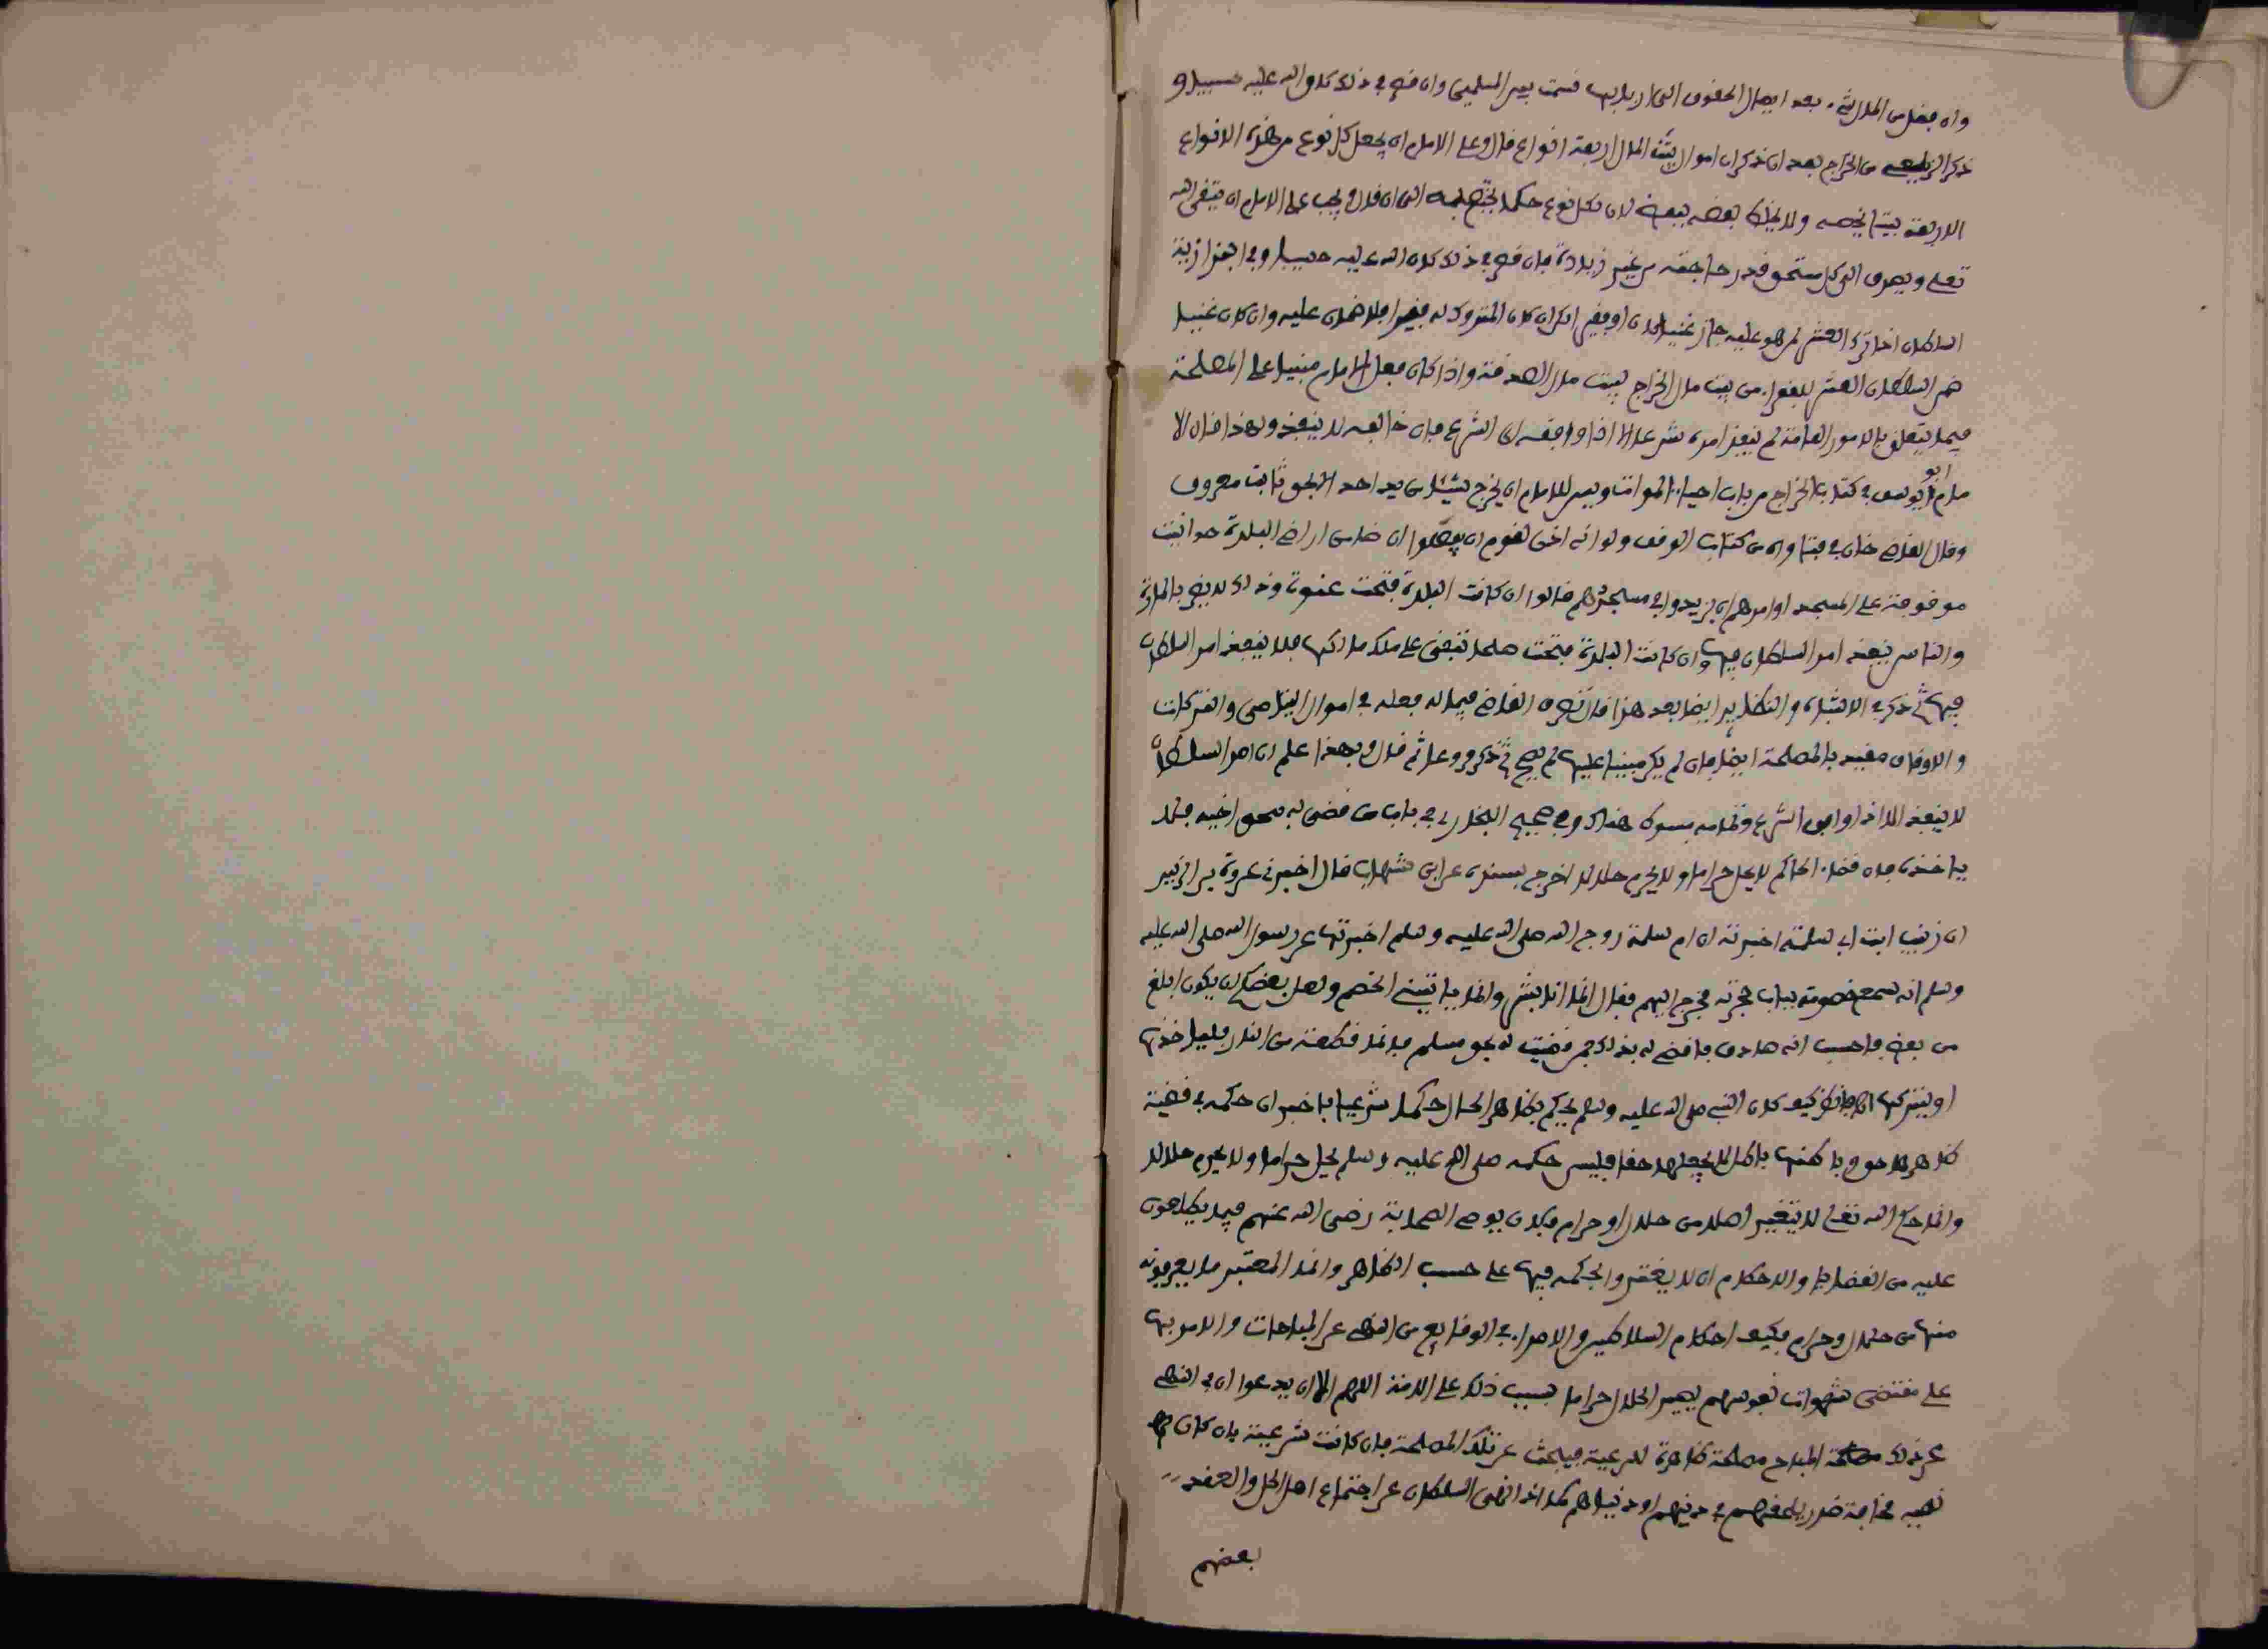 وان فضل من المال شيء بعد ايصال الحقوق الى اربابها قسمت بين المسلمين وان قصر في ذلك كان الله عليه حسيبا و
ذكر الزيلعي من الخراج بعد ان ذكر ان اموال بيت المال اربعة انواع قال وعلى الامام ان يجعل لكل نوع من هذه الانواع
الاربعة بيتا يخصه ولا يخلط بعضه ببعض لان لكل نوع حكما يختص به الى ان قال ويجب على الامام ان يتقي الله
تعلى ويصرف الى كل مستحق قدر حاجته من غير زيادة فان قصر في ذلك كان الله عليه حسيبا وفي البزازية
السلطان اذا ترك العشر لمن هو عليه جاز غنيا كان او فقيرا لكن ان كان المتروك له فقيرا فلا ضمان عليه وان كان غنيا
ضمن السلطان العشر للفقراء من بيت مال الخراج لبيت مال الصدقة واذا كان فعل الامام مبنيا على المصلحة
فيما يتعلق بالامور العامة لم ينفذ امره شرعا الا اذا وافقه اي الشرع فان خالفه لا ينفذ ولهذا قال الا
مام ابو يوسف في كتاب الخراج من باب احياء الموات وليس للامام ان يخرج شيئا من يد احد الا بحق ثابت معروف
وقال القاضي خان في فتاواه من كتاب الوقف ولو انه اذن لقوم ان يجعلوا ارضا من اراضي البلدة حوانيت
موقوفة على المسجد او امرهم ان يزيدوا في مسجدهم قالوا ان كانت البلدة فتحت عنوة وذلك لا يضر بالمارة
والناس ينفذ امر السلطان فيها وان كانت البلدة فتحت صلحا تبقى على ملك ملاكها فلا ينفذ امر السلطان
فيها ثم ذكر في الاشباه والنظاير ايضا بعد هذا قال تصرف القاضي فيما له فعله في اموال اليتامى والتركات
والاوقاف مقيد بالمصلحة ايضا فان لم يكن مبنيا عليها لم يصح ثم ذكر فروعا ثم قال وبهذا علم ان امر السلطان
لا ينفذ الا اذا وافق الشرع وتمامه مبسوط هناك وفي صحيح البخاري في باب من قضى له بحق اخيه فلا
ياخذه فان قضاء الحاكم لا يحل حراما ولا يحرم حلالا اخرج بسنده عن ابن شهاب قال اخبرني عروة بن الزبير
ان زينب ابنة ابي سلمة اخبرته ان ام سلمة زوج النبي صلى الله عليه وسلم اخبرتها عن رسول الله صلى الله عليه
وسلم انه سمع خصومة بباب حجرته فخرج اليهم فقال انما انا بشر وانه ياتيني الخصم ولعل بعضكم ان يكون ابلغ
من بعض فاحسب انه صادق فاقضي له بذلك فمن قضيت له بحق مسلم فانما قطعة من النار فلياخذها
او ليتركها انظر كيف كان النبي صلى الله عليه وسلم يحكم بظاهر الحال حكما شرعيا فاخبر ان حكمه في قضية
ظاهرها حق وباطنها باطل لا يجعلها حقا فليس حكمه صلى الله عليه وسلم يحل حراما ولا يحرم حلالا
وانما حكم الله تعلى لا يتغير اصلا من حلال او حرام فكان يوصي الصحابة رضي الله عنهم فيما يطلعون
عليه من القضايا والاحكام ان لا يغتروا بحكمه فيها على حسب الظاهر وانما المعتبر ما يعرفونه
منها من حلال وحرام فكيف احكام السلاطين والامراء في الوقايع من النهي عن المباحات والامر بها
على مقتضى شهوات نفوسهم يصير الحلال حراما بسبب ذلك على الامة اللهم الا ان يدعوا ان في النهي
عن ذلك المباح مصلحة ظاهرة للرعية فيبحث عن تلك المصلحة فان كانت شرعية بان كان في
نهيه مخافة ضرر يلحقهم في دينهم او دنياهم كما اذا نهى السلطان عن اجتماع اهل الحل والعقد
بعضهم